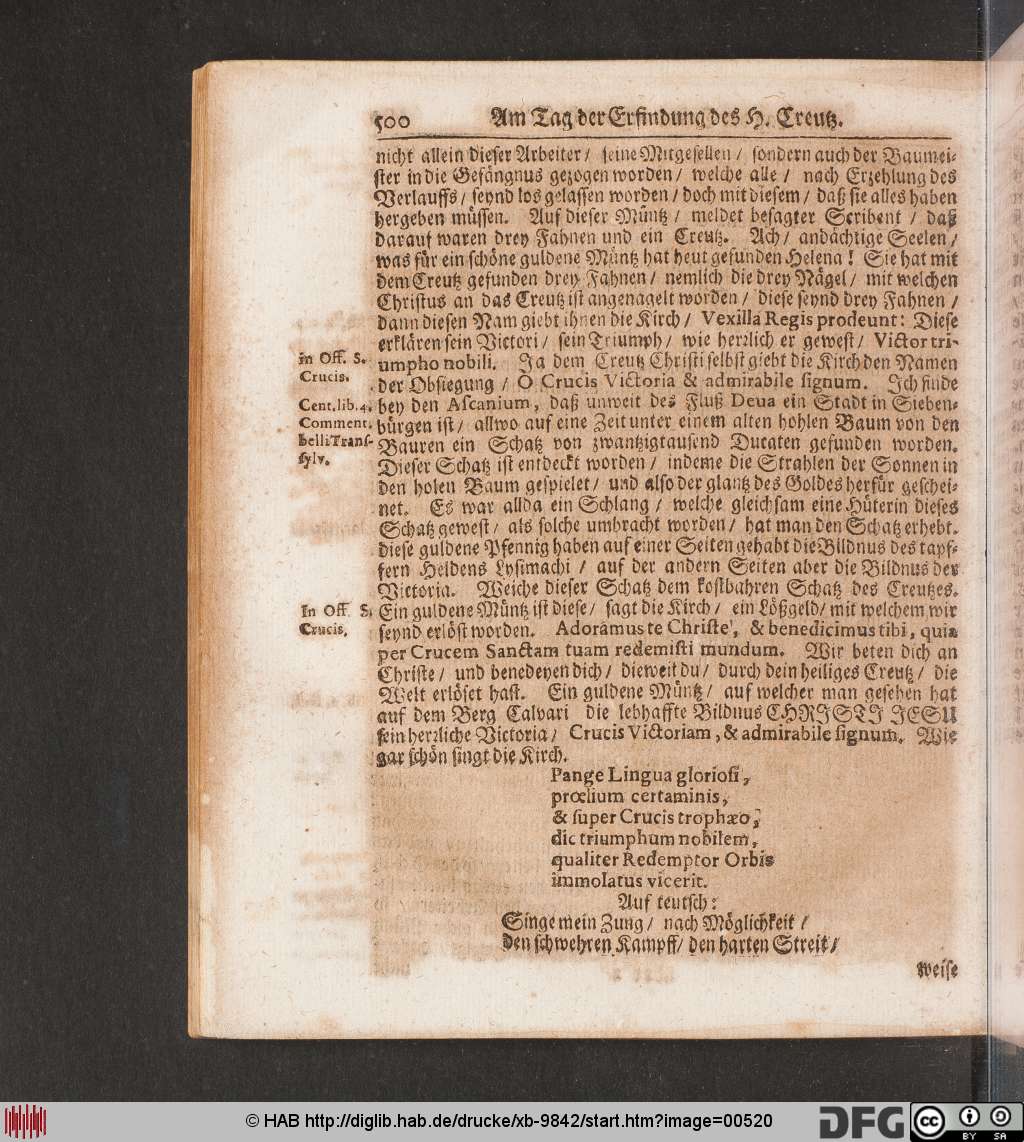 500 Am Tag der Erfindung des H. Creutz.
nicht allein dieser Arbeiter / seine Mitgesellen / sondern auch der Baumei-
ster in die Gefängnus gezogen worden / welche alle / nach Erzehlung des
Verlauffs / seynd los gelassen worden / doch mit diesem / daß sie alles haben
hergeben müssen. Auf dieser Müntz / meldet besagter Scribent / daß
darauf waren drey Fahnen und ein Creutz. Ach / andächtige Seelen /
was für ein schöne guldene Müntz hat heut gefunden Helena! Sie hat mit
dem Creutz gefunden drey Fahnen / nemlich die drey Nägel / mit welchen
Christus an das Creutz ist angenagelt worden / diese seynd drey Fahnen /
dann diesen Nam giebt ihnen die Kirch / Vexilla Regis prodeunt: Diese
erklären sein Victori / sein Triumph / wie herrlich er gewest / Victor tri-
in Off. S.
Crucis.
umpho nobili. Ja dem Creutz Christi selbst giebt die Kirch den Namen
der Obsiegung / O Crucis Victoria & admirabile signum. Ich finde
Cent. lib. 4.
Comment.
belli Trans-
sylv.
bey den Ascanium, daß unweit des Fluß Deua ein Stadt in Sieben-
bürgen ist / allwo auf eine Zeit unter einem alten hohlen Baum von den
Bauren ein Schatz von zwantzigtausend Ducaten gefunden worden.
Dieser Schatz ist entdeckt worden / indeme die Strahlen der Sonnen in
den holen Baum gespielet / und also der glantz des Goldes herfür geschei-
net. Es war allda ein Schlang / welche gleichsam eine Hüterin dieses
Schatz gewest / als solche umbracht worden / hat man den Schatz erhebt.
diese guldene Pfennig haben auf einer Seiten gehabt die Bildnus des tapf-
fern Heldens Lysimachi / auf der andern Seiten aber die Bildnus der
Victoria. Weiche dieser Schatz dem kostbahren Schatz des Creutzes.
In Off. S.
Crucis.
Ein guldene Müntz ist diese / sagt die Kirch / ein Lößgeld / mit welchem wir
seynd erlöst worden. Adoramus te Christe, & benedicimus tibi, quia
per Crucem Sanctam tuam redemisti mundum. Wir beten dich an
Christe / und benedeyen dich / dieweil du / durch dein heiliges Creutz / die
Welt erlöset hast. Ein guldene Müntz / auf welcher man gesehen hat
auf dem Berg Calvari die lebhaffte Bildnus CHRISTI JESU
sein herrliche Victoria / Crucis Victoriam, & admirabile signum. Wie
gar schön singt die Kirch.
Pange Lingua gloriosi,
prœlium certaminis,
& super Crucis trophæo,
dic triumphum nobilem,
qualiter Redemptor Orbis
immolatus vicerit.
Auf teutsch:
Singe mein Zung / nach Möglichkeit /
den schwehren Kampff / den harten Streit /
weise
© HAB http://diglib.hab.de/drucke/xb-9842/start.htm?image=00520
DFG
cc
BY SA